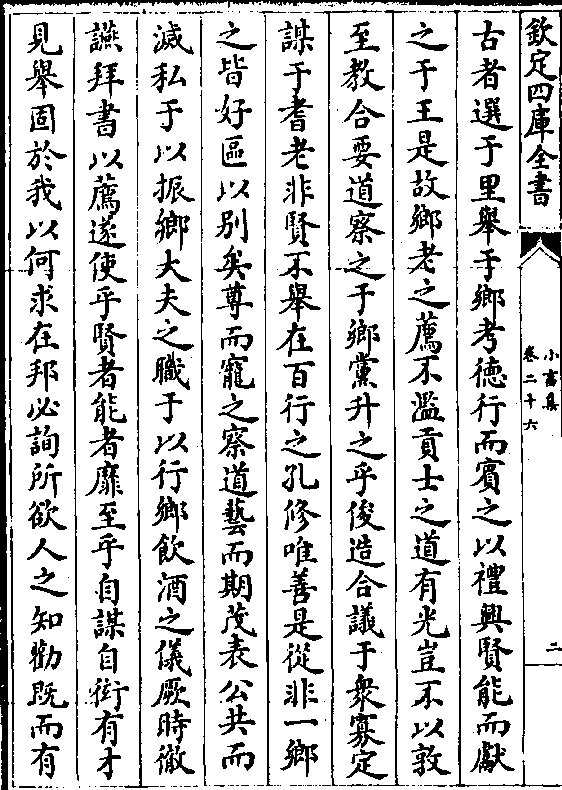 欽定四庫全書
小畜集
卷二十六
二
古者選于里舉于鄉考德行而賓之以禮興賢能而獻
之于王是故鄉老之薦不濫貢士之道有光豈不以敦
至教合要道察之于鄉黨升之乎俊造合議于衆寡定
謀于耆老非賢不舉在百行之孔修唯善是從非一鄉
之皆好區以别矣尊而寵之察道藝而期茂表公共而
滅私于以振鄉大夫之職于以行鄉飲酒之儀厥時徹
讌拜書以薦遂使乎賢者能者靡至乎自謀自衒有才
見舉固於我以何求在邦必詢所欲人之知勸既而有